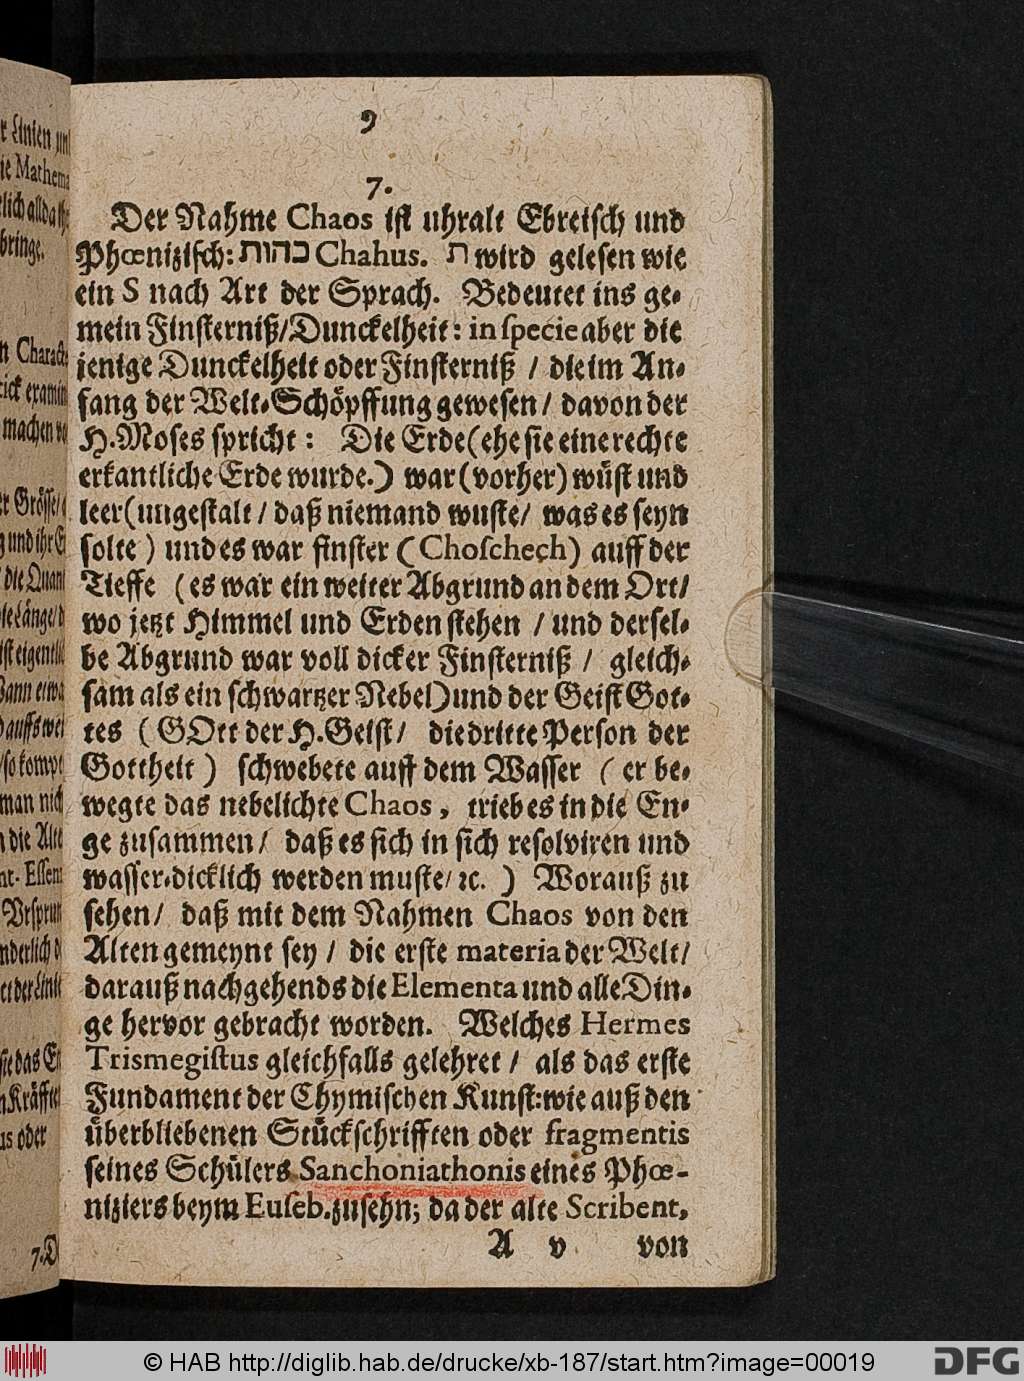 9
7.
Der Nahme Chaos ist uhralt Ebreisch und
Phœnizisch: כהות Chahus. ת wird gelesen wie
ein S nach Art der Sprach. Bedeutet ins ge-
mein Finsterniß/Dunckelheit: in specie aber die
jenige Dunckelheit oder Finsterniß / die im An-
fang der Welt-Schöpffung gewesen / davon der
H. Moses spricht: Die Erde (ehe sie eine rechte
erkantliche Erde wurde.) war (vorher) wüst und
leer (ungestalt / daß niemand wuste/ was es seyn
solte) und es war finster (Choschech) auff der
Tieffe (es war ein weiter Abgrund an dem Ort/
wo jetzt Himmel und Erden stehen / und dersel-
be Abgrund war voll dicker Finsterniß / gleich-
sam als ein schwartzer Nebel) und der Geist Got-
tes (GOtt der H. Geist/ die dritte Person der
Gottheit) schwebete auff dem Wasser (er be-
wegte das nebelichte Chaos, trieb es in die En-
ge zusammen/ daß es sich in sich resolviren und
wasser-dicklich werden muste/ ꝛc.) Worauß zu
sehen/ daß mit dem Nahmen Chaos von den
Alten gemeynt sey / die erste materia der Welt/
darauß nachgehends die Elementa und alle Din-
ge hervor gebracht worden. Welches Hermes
Trismegistus gleichfalls gelehret / als das erste
Fundament der Chymischen Kunst: wie auß den
überbliebenen Stückschrifften oder fragmentis
seines Schülers Sanchoniathonis eines Phœ-
niziers beym Euseb. zusehn; da der alte Scribent,
A v von
r Linien un
ie Mathema
lich allda
bringe.
n Characte
examin
machen
er Grösse/
g und ihr
die Quant
die Länge/
ist eigentli
Wann etwa
auffs wei
/so kompt
man nich
n die Alte
nt. Essen
Ursprun
nderlich
et der Lini
sie das
n Kräffte
us oder
7. D
© HAB http://diglib.hab.de/drucke/xb-187/start.htm?image=00019
DFG